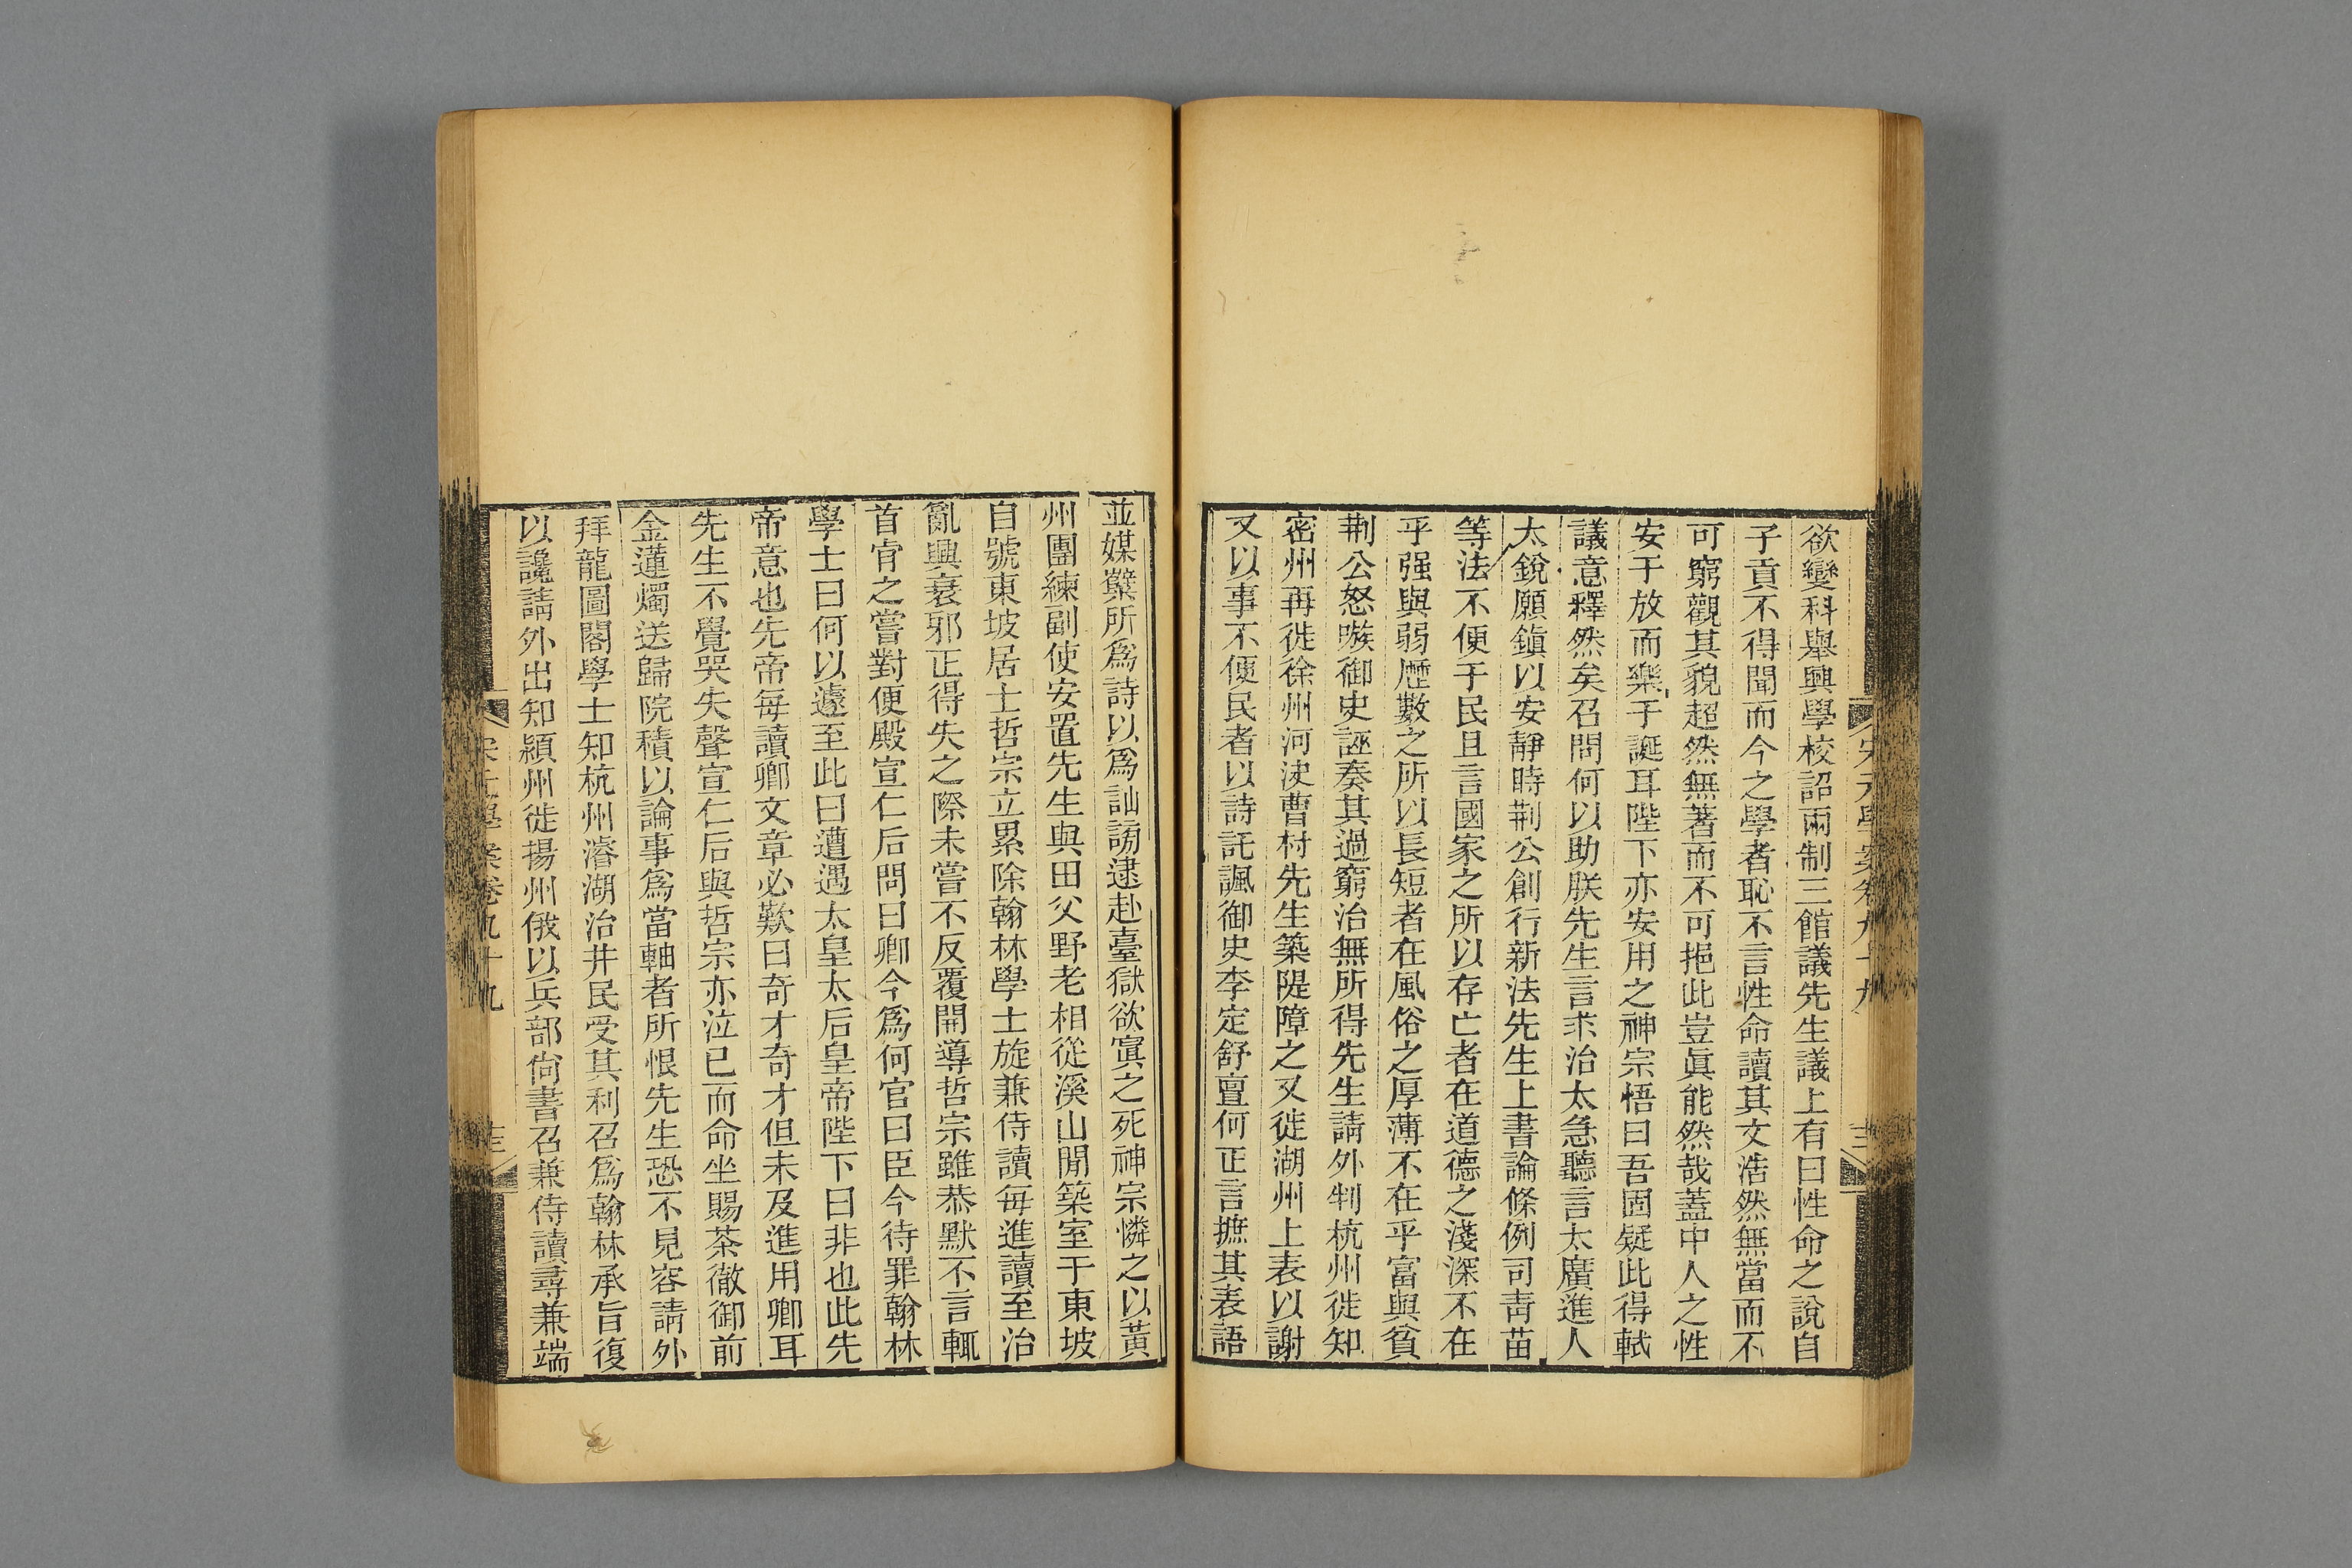 欲變科舉興學校詔兩制三館議先生議上有曰性命之說自
子貢不得聞而今之學者恥不言性命讀其文浩然無當而不
可窮觀其貌超然無著而不可挹此豈眞能然哉蓋中人之性
安于放而樂于誕耳陛下亦安用之神宗悟曰吾固疑此得軾
議意釋然矣召問何以助朕先生言求治太急聽言太廣進人
太銳願鎭以安靜時荆公創行新法先生上書論條例司靑苗
等法不便于民且言國家之所以存亡者在道德之淺深不在
乎强與弱歷數之所以長短者在風俗之厚薄不在乎富與貧
荆公怒嗾御史誣奏其過窮治無所得先生請外判杭州徙知
密州再徙徐州河決曹村先生築隄障之又徙湖州上表以謝
又以事不便民者以詩託諷御史李定舒亶何正言摭其表語
並媒糱所爲詩以爲訕謗逮赴臺獄欲寘之死神宗憐之以黃
州團練副使安置先生與田父野老相從溪山閒築室于東坡
自號東坡居士哲宗立累除翰林學士旋兼侍讀每進讀至治
亂興衰邪正得失之際未嘗不反覆開導哲宗雖恭默不言輒
首肯之嘗對便殿宣仁后問曰卿今爲何官曰臣今待罪翰林
學士曰何以遽至此曰遭遇太皇太后皇帝陛下曰非也此先
帝意也先帝每讀卿文章必歎曰奇才奇才但未及進用卿耳
先生不覺哭失聲宣仁后與哲宗亦泣已而命坐賜茶徹御前
金蓮燭送歸院積以論事爲當軸者所恨先生恐不見容請外
拜龍圖閣學士知杭州濬湖治井民受其利召爲翰林承旨復
以讒請外出知潁州徙揚州俄以兵部尙書召兼侍讀尋兼端
宋元學案卷九十九